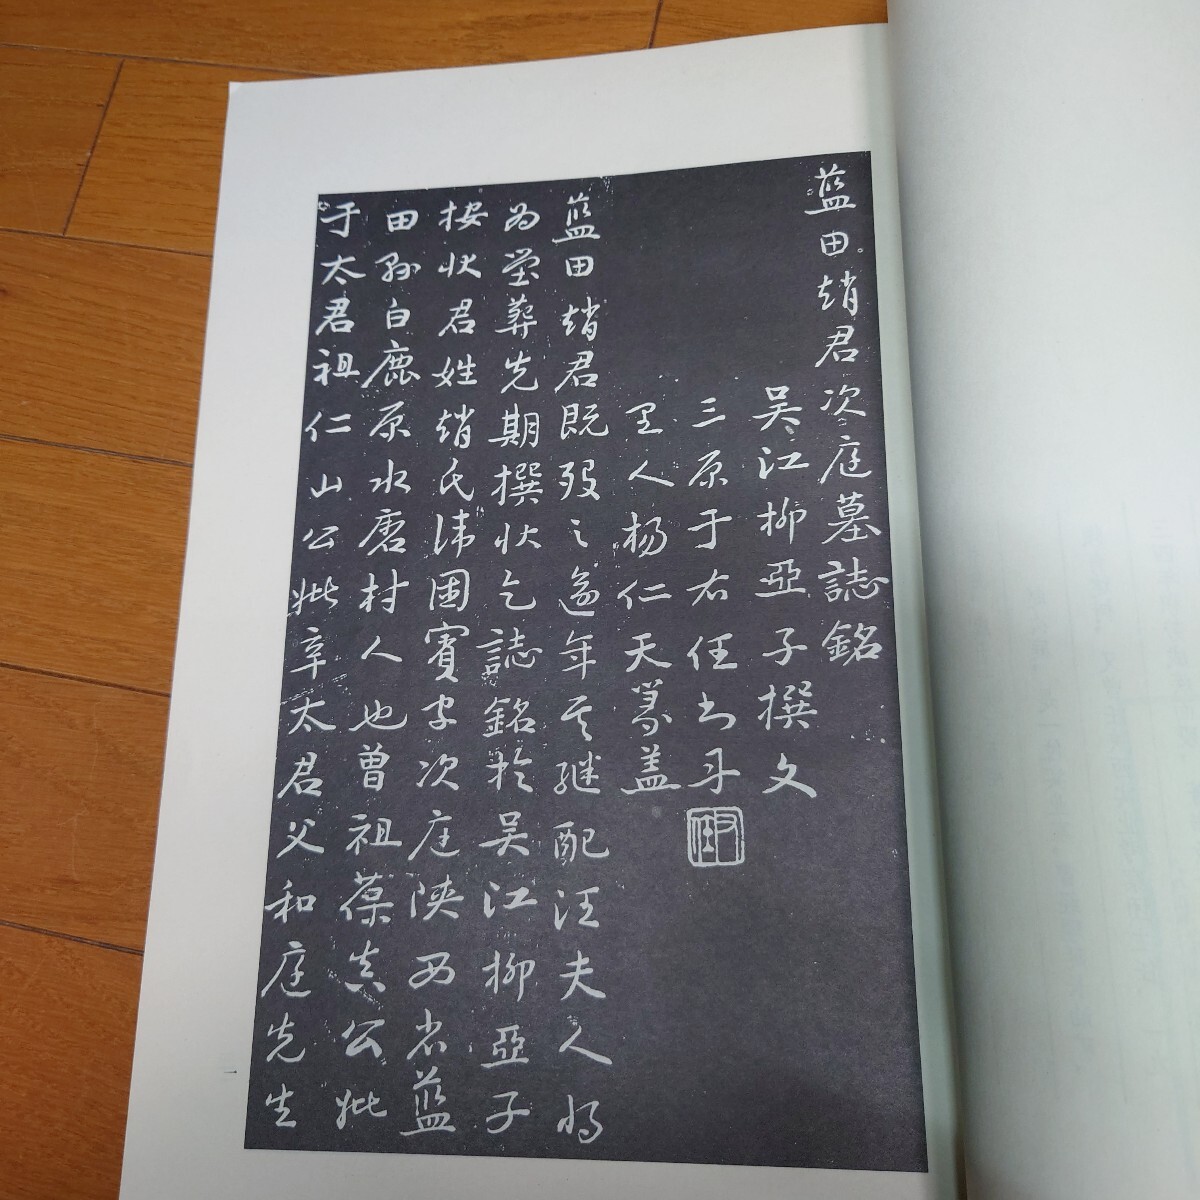 藍田趙君次庭墓誌銘
吴江柳亞子撰文
三原于右任書丹
里人楊仁天篆盖
藍田趙君既殁之逾年其继配汪夫人将
为營葬先期撰状乞誌銘於吴江柳亞子
按状君姓趙氏讳国賓字次庭陕西省藍
田縣白鹿原水唐村人也曾祖葆真公妣
于太君祖仁山公妣辛太君父和庭先生
一